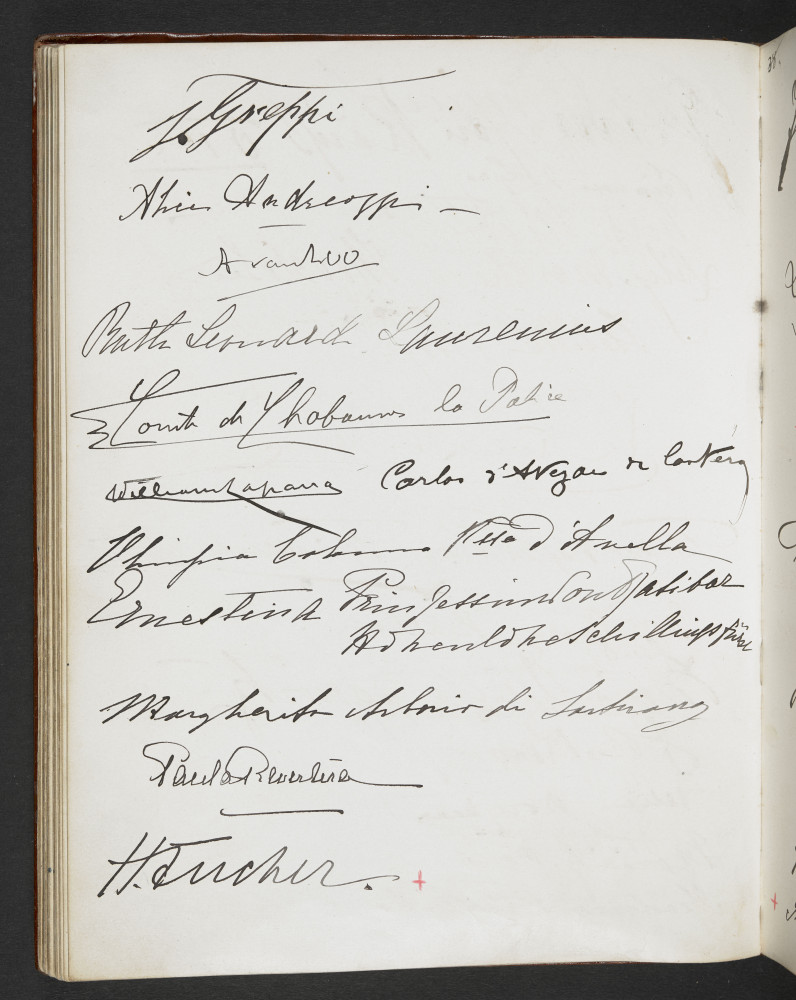 J. Greppi
Alice Andreoppi
A van
Ruth Leonard Laurenius
Comte de Chabannes la Palice
William Carlos d'Avezac de Castéra
Olimpia Colonna Pssa d'Avella
Ernestina Prinzessin von Ratibor
Hohenlohe Schillingsfürst
Margherita Arborio di Sartirana
Paula Revertera
H. Tucher.
38.